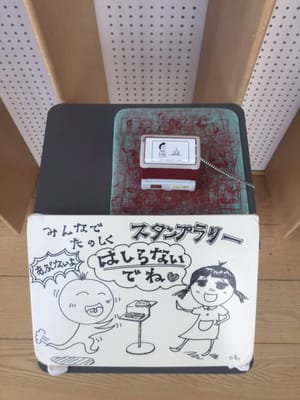 みんなで
たのしく
スタンプラリー
あぶないよ
はしらない
でね♡